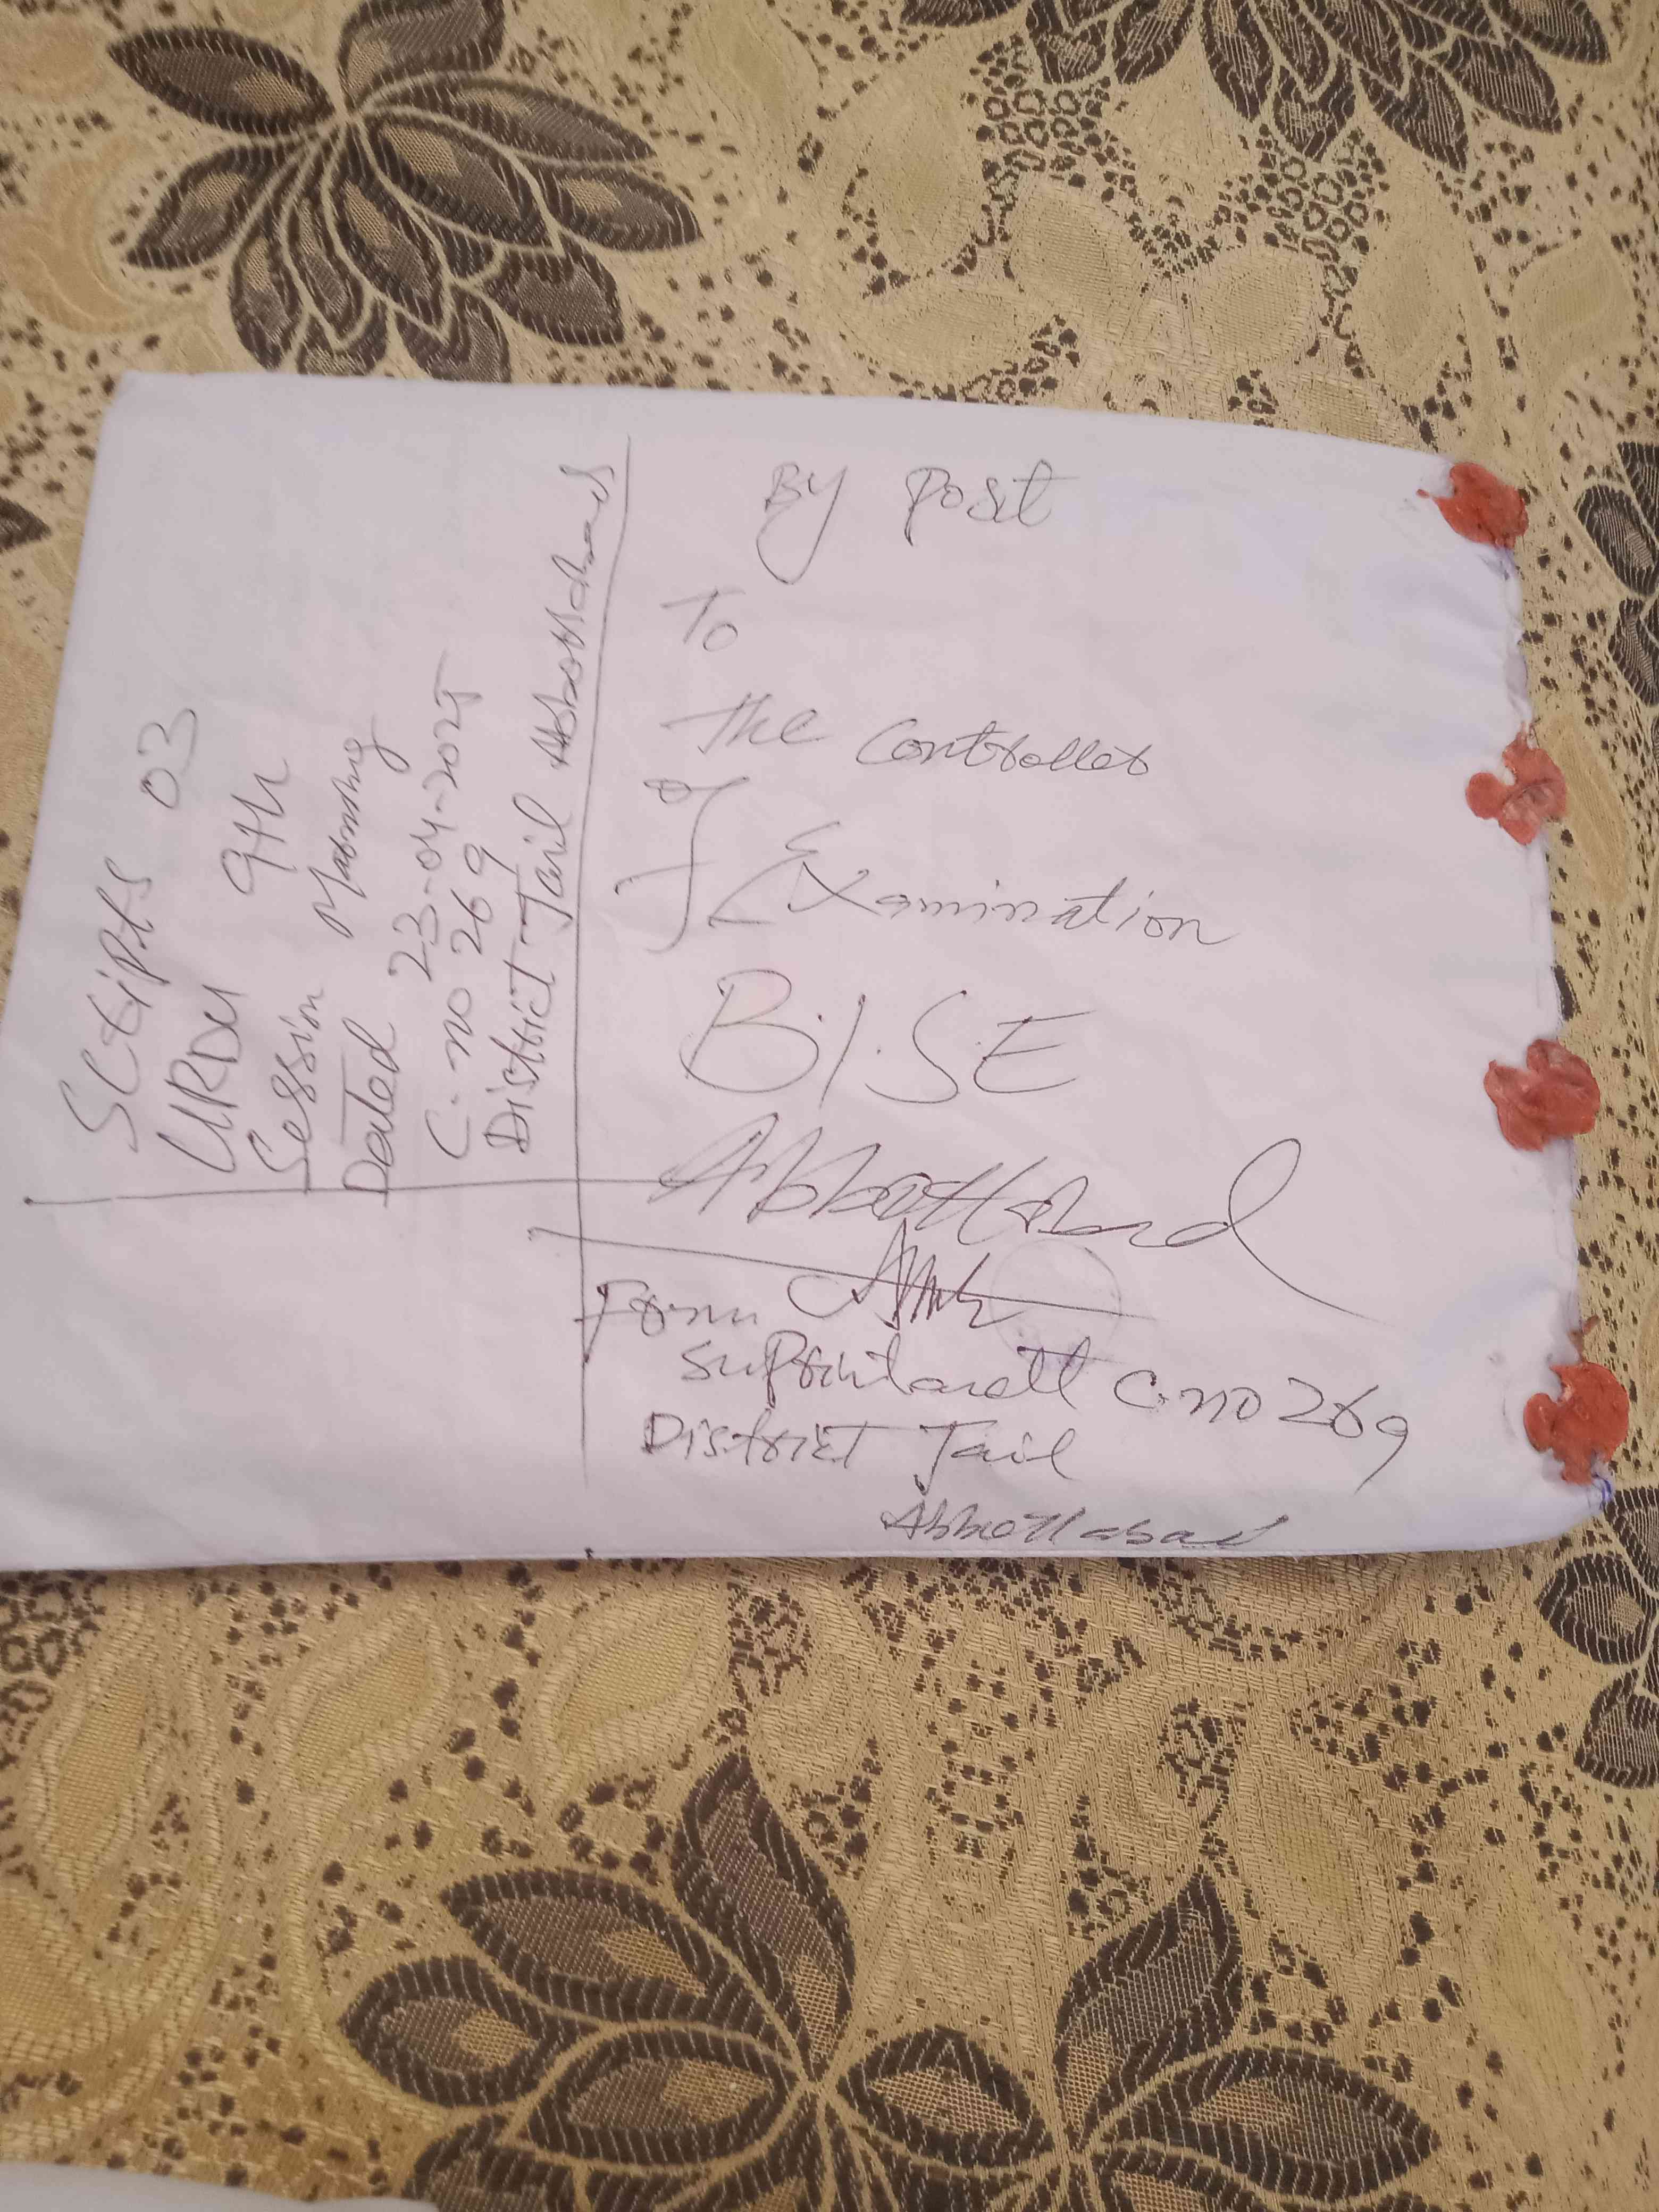 By Post
To
The Controller
of Examination
B.I.S.E
Abbottabad
From
Suprintanett C.no 269
District Jail
Abbottabad
Scripts 03
URDU 9th
Session Morning
Dated 23-04-2025
C. no 269
District Jail Abbottabad